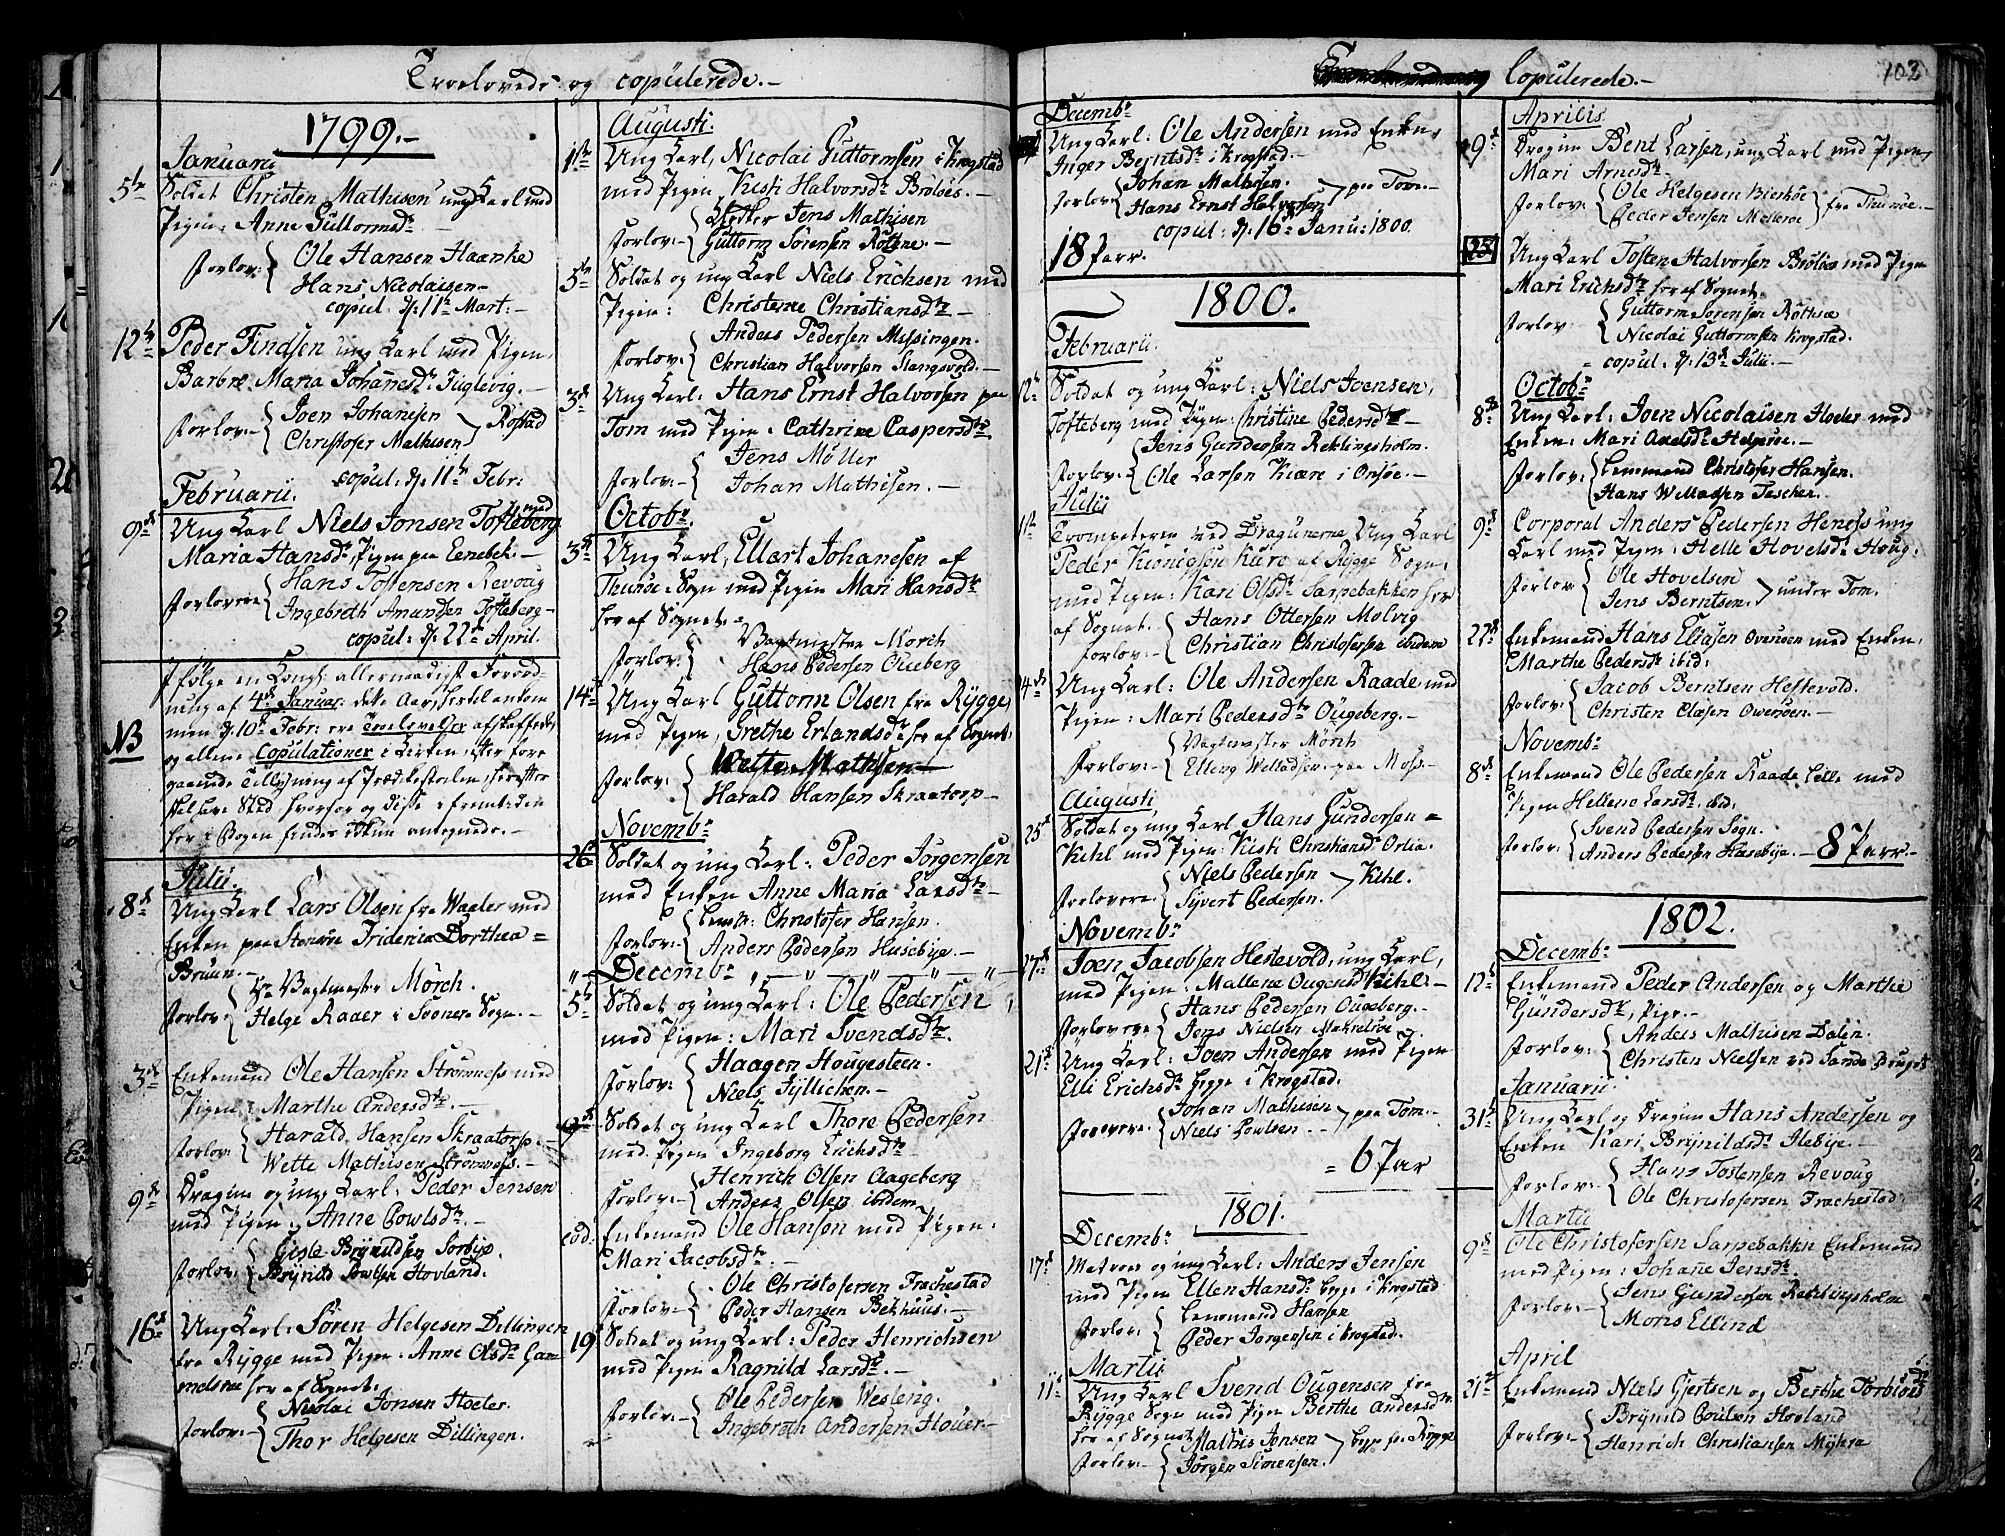 Troelovede og copulerede.-
1799.-
Januarii
5te Soldat Christen Mathisen ung Karl med
Pigen: Anne Guttormsdr.
Forlov: Ole Hansen Haanke
Hans Nicolaisen-
copul: d: 11te Mart:-
12te Peder Findsen ung Karl med Pigen,
Barbre Maria Johanesdr Fuglevig.-
Forlov:- Joen Johanesen
Christofer Mathisen Rostad
copul: d: 11te Febr:
Februarii.
9de Ung Karl Niels Jonsen Tofteberg med
Maria Hansdr, Pigen paa Eenebek.-
Forlovere Hans Tostensen Revoug
Ingebreth Amundsen Tofteberg-
copul: d: 22de April.
NB Ifølge en Kongl: allernaadigst Forord-
ning af 4de Januar: dette Aar, hertil ankom
men d: 10de Febr: ere Troelovelser afskaffede,
og allene Copulationer i Kirken, efter fore
gaaende Tillysning af Prædikestolen, herefter
skal have Sted hvorfor og disse i fremtiden
her i Bogen findes ickun antegnede.-
Julii.
8de Ung Karl Lars Olsen fra Waaler med
Enken paa Stenene Friderica Dorthea=
Bruun.-
Forlov: Hr Vagtmester Mörch.
Helge Raaer i Svonere Sogn.-
3de Enkemand Ole Hansen Strømness med
Pigen: Marthe Andersdr.-
Forlov: Harald Hansen Skraatorp.-
Wette Mathisen Strömness.-
9de Dragun og ung Karl: Peder Jensen
med Pigen: Anne Powlsdr.-
Forlov: Brynildsen Torbye.
Brynild Powlsen Hovland.
16de Ung Karl: Sören Helgesen Dillingen
fra Rygge med Pigen: Anne Olsdr Gam
melsrøe her af Sognet:
Forlov:- Nicolai Jonsen Hoeter
Thor Helgesen Dillingen.
Augusti.
11te Ung Karl, Nicolai Guttormsen i Krogstad
med Pigen, Kisti Halvorsdr Bröloes.-
Forlov:- Jens Mathisen
Guttorm Sörensen Röttne.-
5te Soldat og ung Karl Niels Erichsen med
Pigen: Christense Christiansdr-
Forlov: Anders Pedersen Missingen.
Christian Halvorsen Slangsvold.-
3de Ung Karl: Hans Ernst Halvorsen paa
Tom med Pigen: Cathrine Caspersdr.
Forlov:- Jens Möller
Johan Mathisen.-
Octobr.
3de Ung Karl, Ellert Johanesen af
Thunöe Sogn med Pigen Mari Hansdr
her af Sognet.-
Forlov: Vagtmester Mörch
Hans Pedersen Oueberg
14de Ung Karl Guttorm Olsen fra Rygge,
med Pigen, Grethe Erlandsdr her af Sognet.
Forlov: Wette Mathsen-
Harald Hansen Skraatorp-
Novembr
26de Soldat og ung Karl: Peder Jörgensen
med Enken Anne Maria Larsdr-
Forlov:- Lensm: Christofer Hansen.
Anders Pedersen Husebye.-
Decembr
5te Soldat og ung Karl: Ole Pedersen,
med Pigen: Mari Svendsdr.
Forlov: Haagen Hougesteen.
Niels Fyllichen.-
9de Soldat og ung Karl Thore Pedersen
med Pigen Ingeborg Erichsdr
Forlov:- Henrich Olsen Aageberg
Anders Olsen ibidem
eod: Enkemand Ole Hansen med Pigen:
Mari Jacobsdr.-
Forlov:- Ole Christofersen Frachestad
Peder Hansen Bekhuus.-
19 Soldat og ung Karl: Peder Henrichsen
med Pigen Ragnild Larsdr.-
Forlov:- Ole Pedersen Wesleng.
Ingebreth Andersen Houer-
Copulerede.- 102
Decembr
Ung Karl: Ole Andersen med Enken,
Inger Berntsdr i Krogstad.-
Forlov: Johan Mathisen.
Hans Ernst Halvorsen paa Tom.-
copul: d: 16de Janu: 1800.
18 Parr.
1800.
Februarii.
12te Soldat og ung Karl: Niels Joensen,
Tofteberg med Pigen: Christine Pedersdr-
Forlov:- Jens Gundersen Reklingsholm.
Ole Larsen Kiære i Onsöe.-
Julii
11te Trompeteren ved Dragunerne Ung Karl
Peder Kiönigsen Kure af Rygge Sogn,
med Pigen: Kari Olsdr Sarpebakken her
af Sognet.
Forlov:- Hans Ottersen Molvig
Christian Christofersen ibidem
14de Ung Karl: Ole Andersen Raade med
Pigen: Mari Pedersdr Ougeberg.-
Forlov:- Vagtmester Mörch
Elling Welladsen paa Moss.-
Augusti
25de Soldat og ung Karl, Hans Gundersen=
Kihl med Pigen: Kisti Christiansdr Orlia.-
Forlovere Niels Pedersen
Syvert Pedersen. Kihl.
Novembr
17de Joen Jacobsen Hestevold, ung Karl,
med Pigen: Mallene Ougensdr Kihl.-
Forlovere Hans Pedersen Ougeberg.-
Jens Nielsen Makrelröe.-
21de Ung Karl: Joen Andersen med Pigen
Elli Erichsdr begge i Krogstad.
Forlovere: Johan Mathisen
Niels Powlsen.- paa Tom.-
= 6 Par
1801.
Decembr
17de Matros og ung Karl: Anders Jensen
med Pigen Ellen Hansdr begge i Krogstad
Forlov: Lensmand Hansen
Peder Jörgensen i Krogstad.
Martii
11te Ung Karl Svend Ougensen fra
Rygge Sogn med Pigen Berthe Andersdr
her af Sognet
Forlov:- Mathis Jensen
Jörgen Simensen. begge fra Rygge
Aprilis
9de Dragun Bent Larsen, ung Karl med Pigen,
Mari Arnesdr
Forlov: Ole Helgesen Bierköe
Peder Jensen Mellerøe fra Thunöe.-
25 Ung Karl Tosten Halvorsen Bröloes med Pigen
Mari Erichsdr her af Sognet.
Forlov: Guttorm Sörensen Röthne
Nicolai Guttormsen Krogstad.
= copul: d: 13de Julii.-
Octobr
8de Ung Karl: Joen Nicolaisen Hoeter med
Enken: Mari Axelsdr Helgeröe.-
Forlov: Lensmand Christofer Hansen.
Hans Welladsen Tascher.
9de Corporal Anders Pedersen Heness ung
Karl med Pigen: Helle Hovelsdr Houg.
Forlov: Ole Hovelsen
Jens Berntsen. under Tom.
22de Enkemand Hans Eliasen Oversöen med Enken,
Marthe Pedersdr ibid:
Forlov: Jacob Berntsen Hestevold.
Christen Olasen Owersöen.-
Novembr
8de Enkemand Ole Pedersen Raade Lille med
Pigen Hellene Larsdr ibid:
Forlov: Svend Pedersen Sogn.
Anders Pedersen Husebye.- 8 Parr.-
1802.
Decembr
12te Enkemand Peder Andersen og Marthe
Gundersdr, Pige.-
Forlov: Anders Mathisen Dalen.
Christen Nielsen ved Sande Bruget
Januarii
31te Ung Karl og Dragun Hans Andersen og
Enken Kari Brynildsdr Ilebye.-
Forlov:- Hans Tostensen Revoug
Ole Christofersen Frachestad
Martii
9de Ole Christofersen Sarpebakken Enkemand
med Pigen: Johane Jensdr.
Forlov:- Jens Gundersen Reklingsholm
Moris Elling
April
21de Enkemand Niels Gjertsen og Berthe Torbiörnsdr
Forlov:- Brynild Poulsen Hovland
Henrich Christiansen Myhra